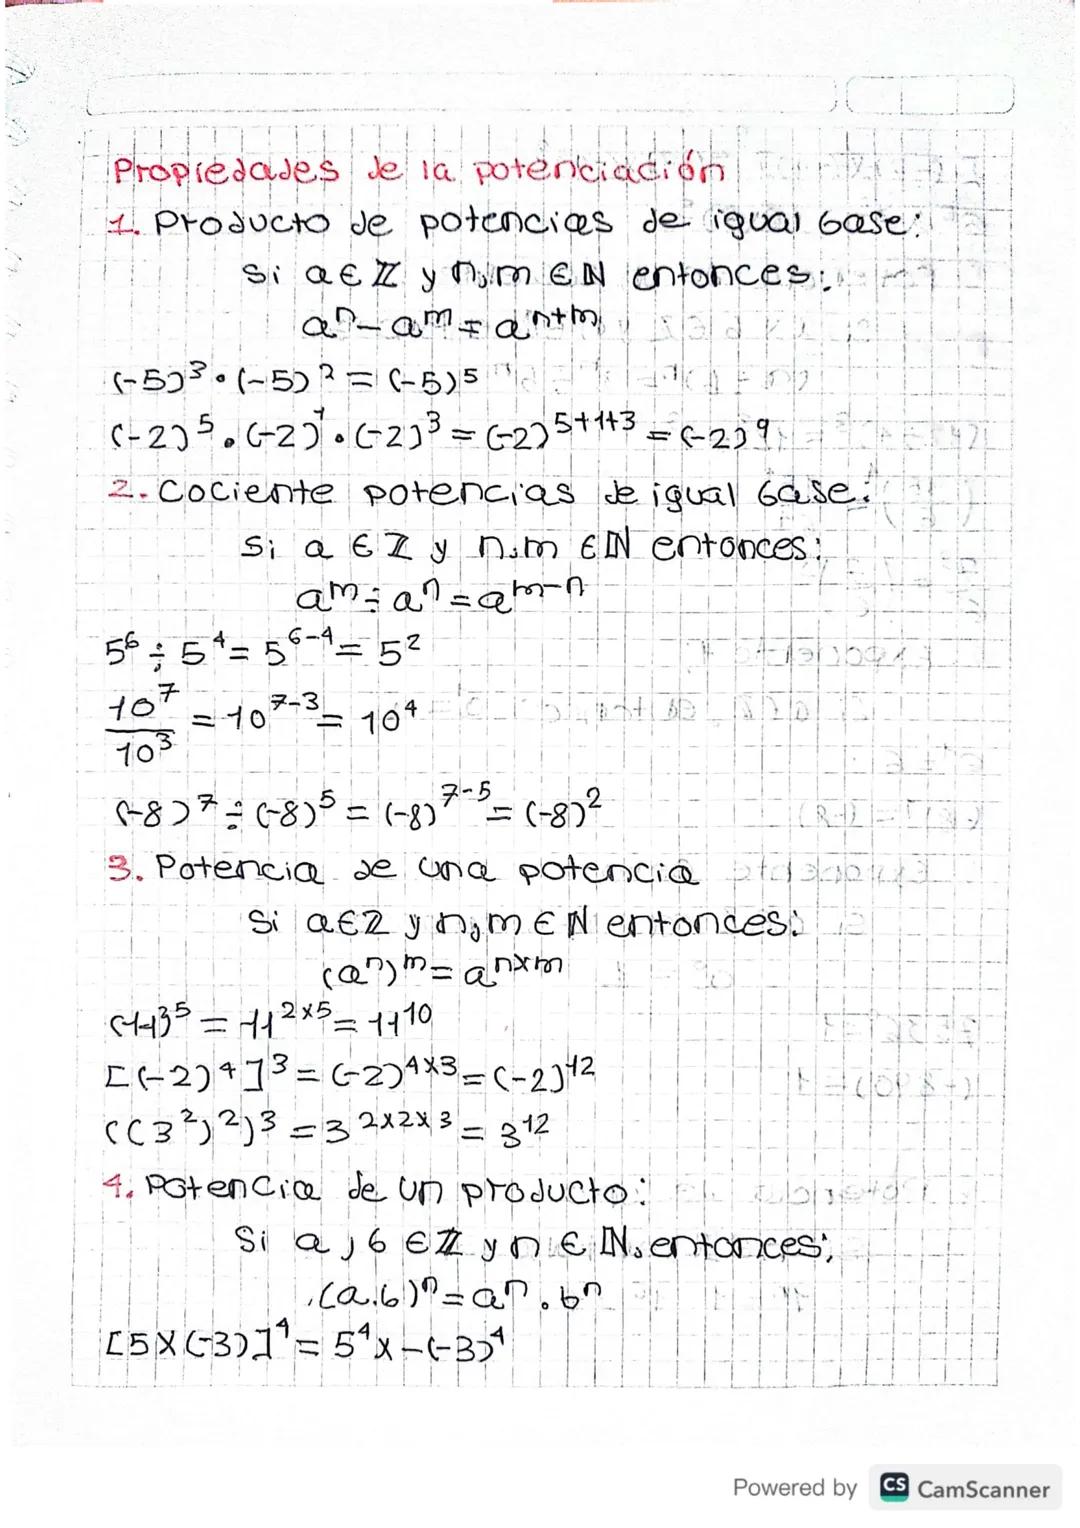 Propiedades de la potenciación
1. Producto de potencias de igual base:
Si a ∈ ℤ y n,m ∈ ℕ entonces:
aⁿ - aᵐ = aⁿ⁺ᵐ
(-5)³ · (-5)² = (-5)5
(-2)⁵ · (-2)¹ · (-2)³ = (-2)⁵⁺¹⁺³ = (-2)⁹
2. Cociente potencias de igual base:
Si a ∈ ℤ y n,m ∈ ℕ entonces:
aᵐ ÷ aⁿ = aᵐ⁻ⁿ
5⁶ ÷ 5⁴ = 5⁶⁻⁴ = 5²
10⁷/10³ = 10⁷⁻³ = 10⁴
(-8)⁷ ÷ (-8)⁵ = (-8)⁷⁻⁵ = (-8)²
3. Potencia de una potencia
Si a ∈ ℤ y n,m ∈ ℕ entonces:
(aⁿ)ᵐ = aⁿˣᵐ
= 11²ˣ⁵ = 11¹⁰
[(-2)⁴]³ = (-2)⁴ˣ³ = (-2)¹²
((3²)²)³ = 3²ˣ²ˣ³ = 3¹²
4. Potencia de un producto:
Si a, b ∈ ℤ y n ∈ ℕ, entonces:
(a.b)ⁿ = aⁿ · bⁿ
[5x(-3)]⁴ = 5⁴ x -(-3)⁴
Powered by CS CamScanner